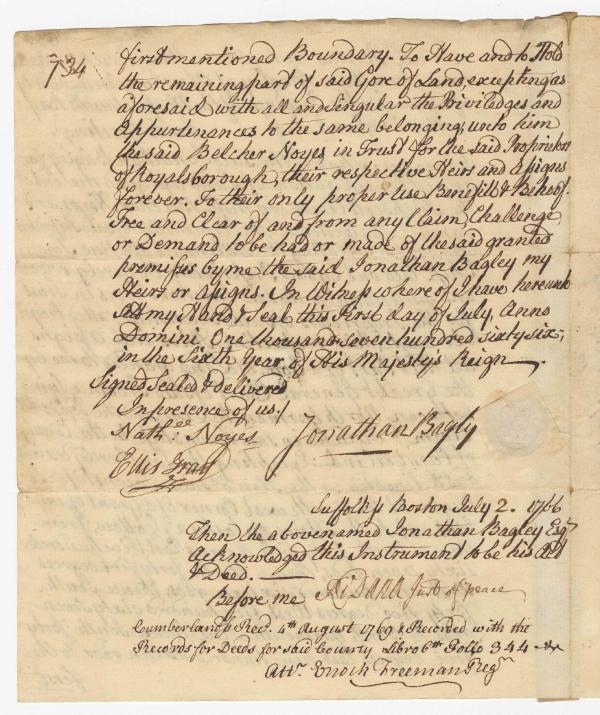 734
first mentioned Boundary. To Have and to Hold
the remaining part of said Gore of Land, excepting as
aforesaid with all and Singular the Priviledges and
Appurtenances to the same belonging, unto him
the said Belcher Noyes in Trust for the said Proprietors
of Royalsborough, their respective Heirs and Assigns
forever. To their only proper Use Benefitt & Behoof.
Free and Clear of and from any Claim, Challenge
or Demand to be had or made of the said granted
premisses by me the said Jonathan Bagley my
Heirs or Assigns. In Witness where of I have hereunto
Set my Hand & Seal this First day of July, Anno
Domini, One thousand seven hundred sixty six;
in the Sixth Year of His Majesty's Reign
Signed Sealed & delivered
In presence of us./
Nath:ll Noyes Jonathan Bagly
Ellis Gray
Suffolk ss Boston July 2. 1766
Then the above named Jonathan Bagley Esqr
Acknowledged this Instrument to be his Act
& Deed.
Before me Ri Dana Just of peace
Cumberland ss Recd. 4th August 1769 & Recorded with the
Records for Deeds for said County Libro 6th Folio 344
Attr. Enoch Freeman Regr